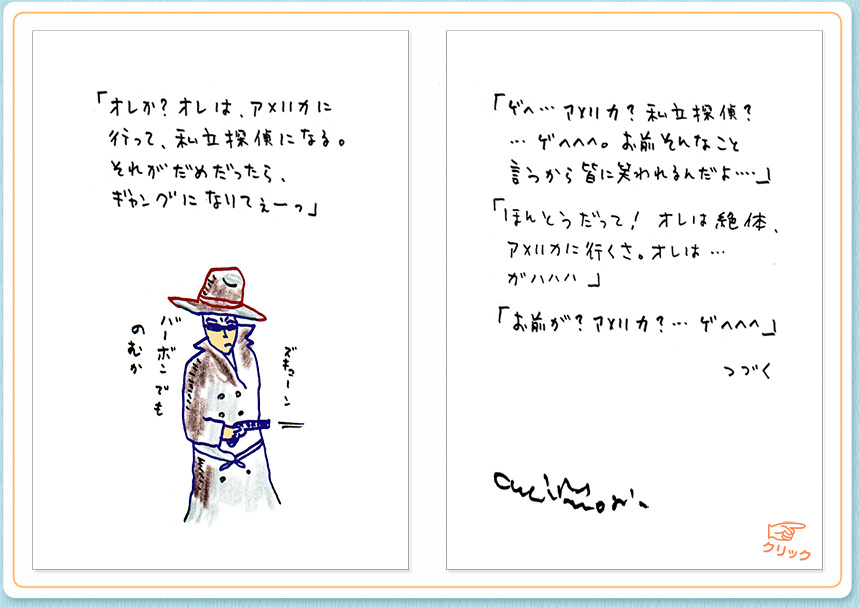 「オレか？オレは、アメリカに
行って、私立探偵になる。
それがだめだったら、
ギャングになりてぇーっ」
バーボンでも
のむか
ズキューン
「ゲヘ…アメリカ？私立探偵？
…ゲヘヘヘ。お前そんなこと
言うから皆に笑われるんだよ‥‥」
「ほんとうだって！オレは絶体、
アメリカに行くさ。オレは…
ガハハハ」
「お前が？アメリカ？…ゲヘヘヘ」
つづく
クリック